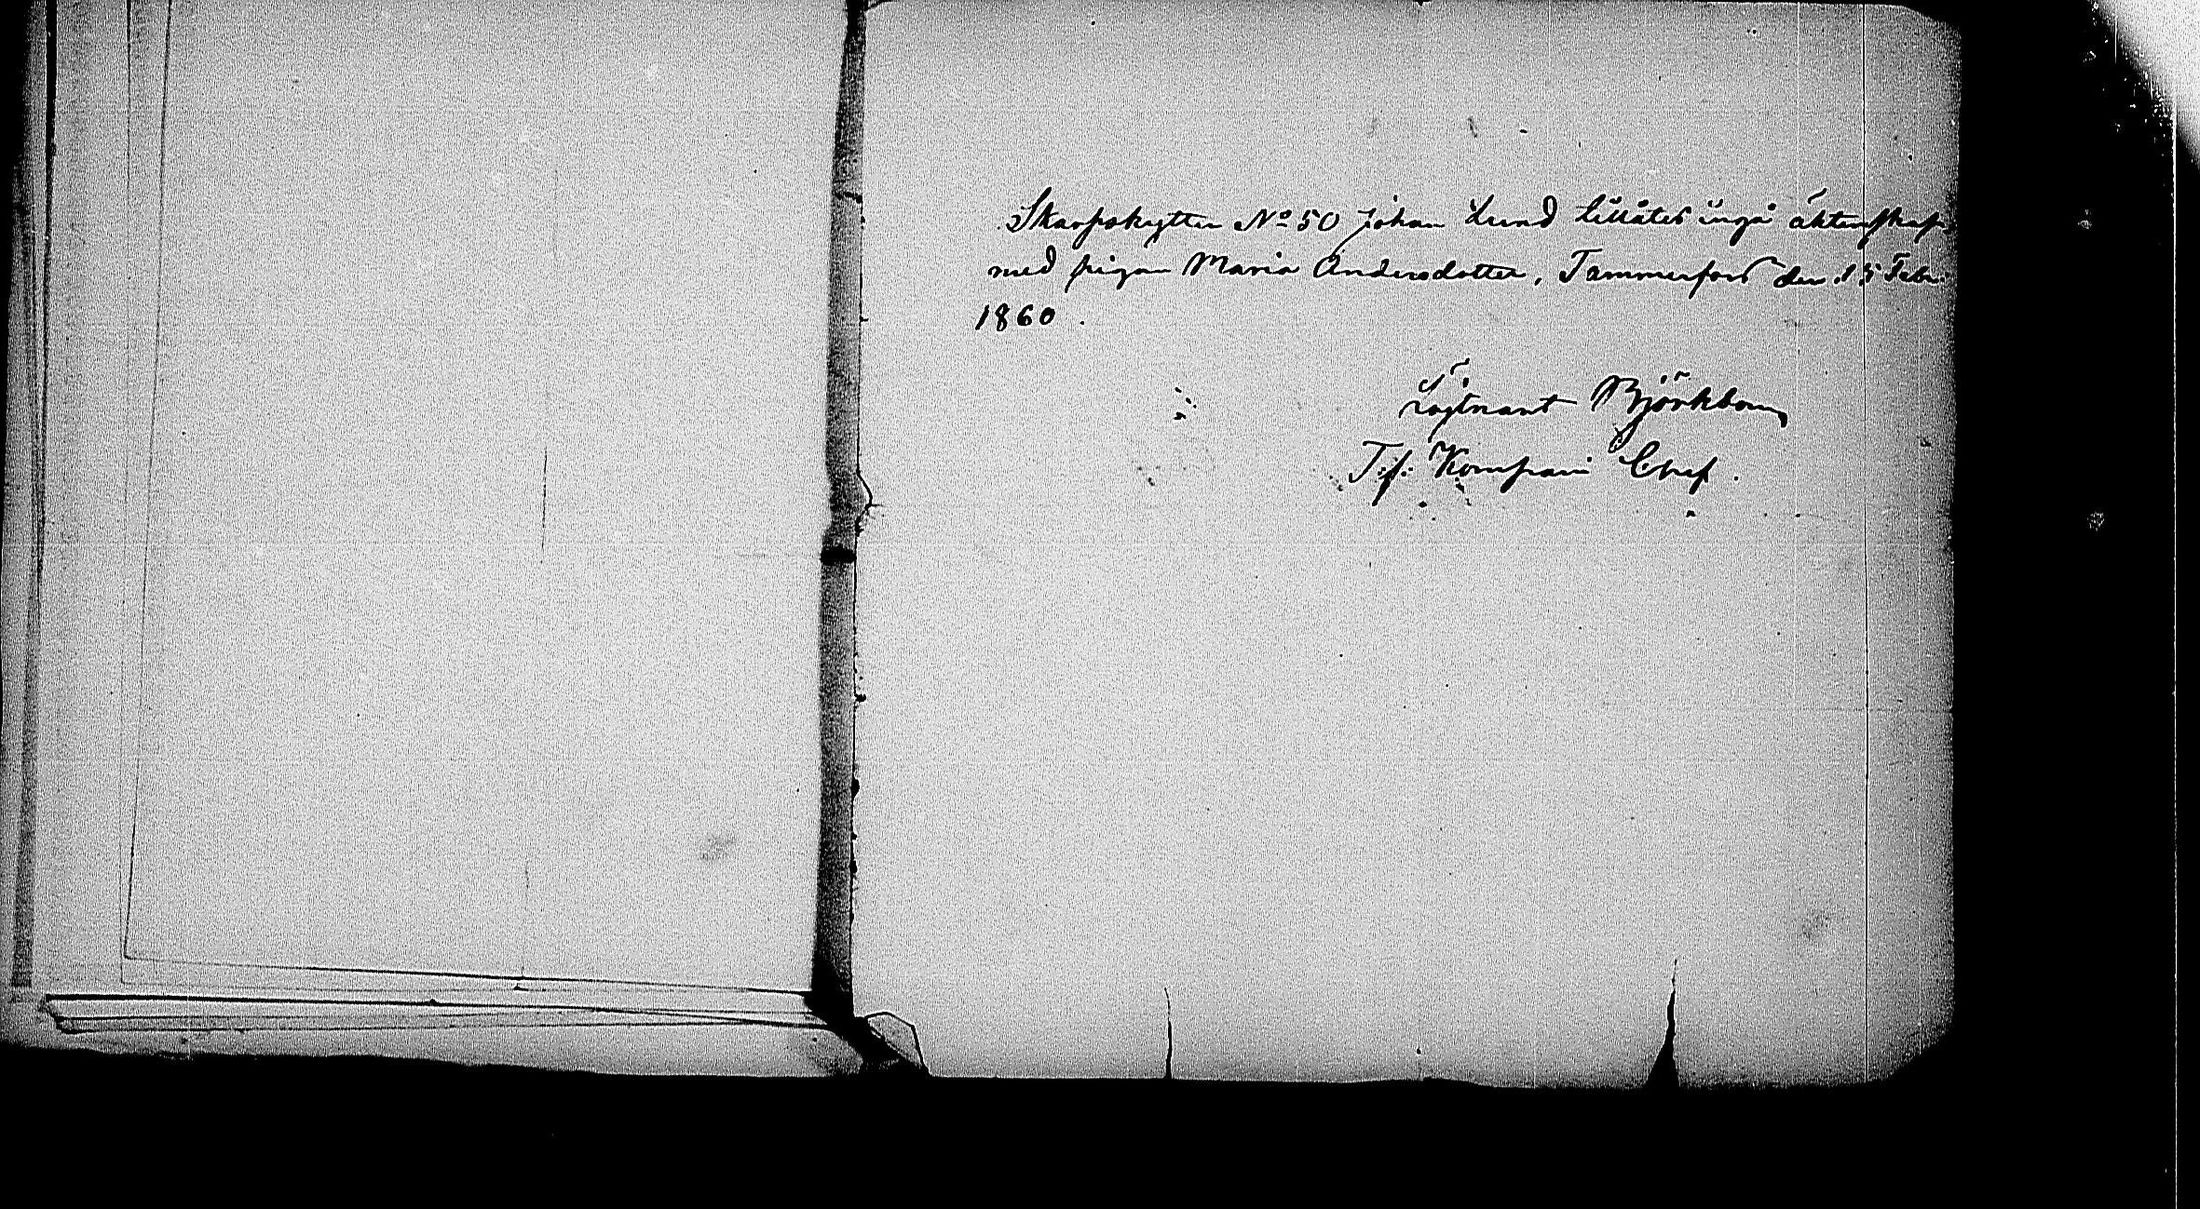 Skarpskytten No 50 Johan Lund tillåtes ingå äktenskap
med pigan Maria Andersdotter, Tammerfors den 15 Febr:
1860.
Löjtnant Björkbom
T.f. Kompani Chef.